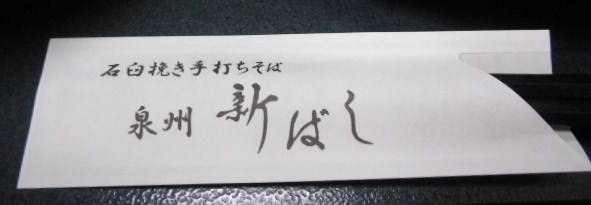 石臼挽き手打ちそば
泉州 新ばし